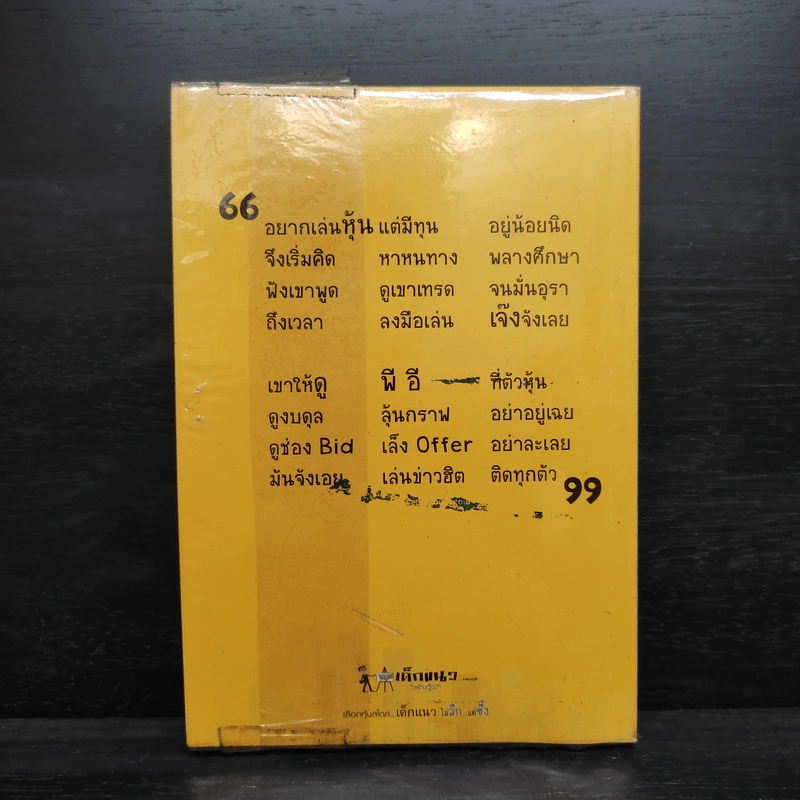 66
อยากเล่นหุ้น แต่มีทุน อยู่น้อยนิด
จึงเริ่มคิด หาหนทาง พลางศึกษา
ฟังเขาพูด ดูเขาเทรด จนมั่นอุรา
ถึงเวลา ลงมือเล่น เจ๊งจังเลย
เขาให้ดู พี อี ที่ตัวหุ้น
ดูงบดุล ลุ้นกราฟ อย่าอยู่เฉย
ดูช่อง Bid เล็ง Offer อย่าละเลย
มันจังเอย เล่นข่าวฮิต ติดทุกตัว
99
เด็กแนว
เลือกหุ้นสไตล์... เด็กแนว ไม่ลึก...แต่ซึ้ง